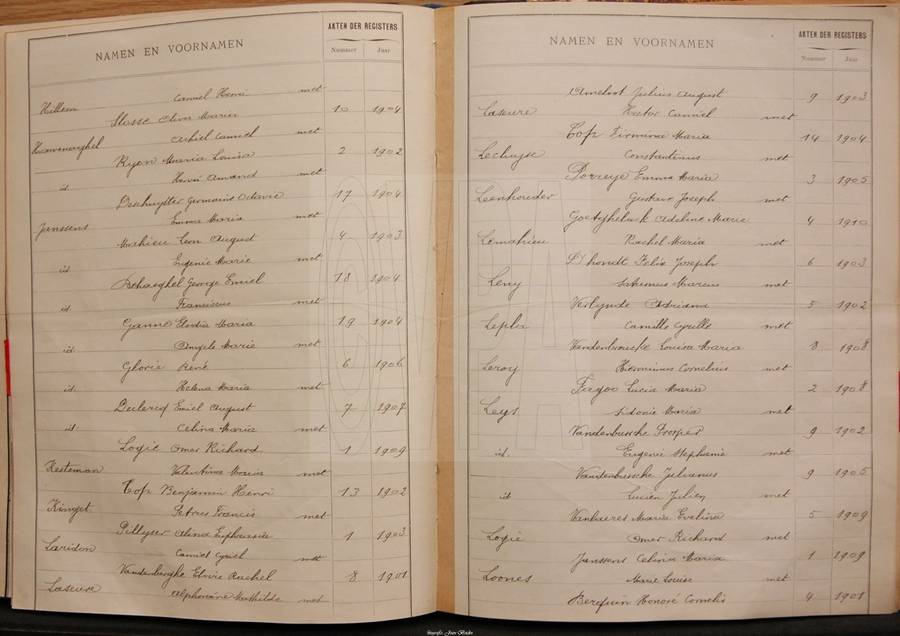 NAMEN EN VOORNAMEN
AKTEN DER REGISTERS
Nummer Jaar
Hillem Camiel Henri met
Slosse Elvire Maria 10 1904
Achiel Camiel met
Ryon Maria Louisa 2 1902
id Henri Amand met
Deschuytter Germaine Octavie 17 1904
Janssens Emma Maria met
Mathieu Leon August 4 1903
id Eugenie Marie met
Dehaeghel George Emiel 18 1904
id Franciscus met
Ganne Maria 19 1904
id Marie met
Glorie René 6 1906
id Helena Maria met
Declercq Emiel August 7 1907
id Celina Maria met
Logie Omer Richard 1 1909
Kesteman Valentina Maria met
Cop Benjamin Henri 13 1902
Kimpt Petrus Francis met
Pillyser Alina Euphrasie 1 1903
Laridon Camiel Cyriel met
Vandenberghe Elvire Rachel 8 1901
Laseure Alphonsine Mathilde met
NAMEN EN VOORNAMEN
AKTEN DER REGISTERS
Nummer Jaar
Ameloot Julius August 9 1903
Laseure Hector Camiel met
Cop Firmina Maria 14 1904
Lechuyse Constantinus met
Porreye Emma Maria 3 1905
Leenhouder Gustave Joseph met
Goetghebuck Adeline Marie 4 1910
Lemahieu Rachel Maria met
Dhondt Felix Joseph 6 1903
Leny Marcus met
Verlynde Adriana 5 1902
Lepla Camille Cyrille met
Vandenbroucke Louisa Maria 8 1908
Leroy Hieronimus Cornelius met
Fagoo Lucia Maria 2 1908
Leys Sidonie Maria met
Vandenbussche Prosper 9 1902
id Eugenie Stephanie met
Vandenbussche Julianus 9 1905
id Lucien Julien met
Vanhaeres Maria Evelina 5 1909
Logie Omer Richard met
Janssens Celina Maria 1 1909
Loones Marie Louise met
Berquin Honoré Cornelis 4 1901